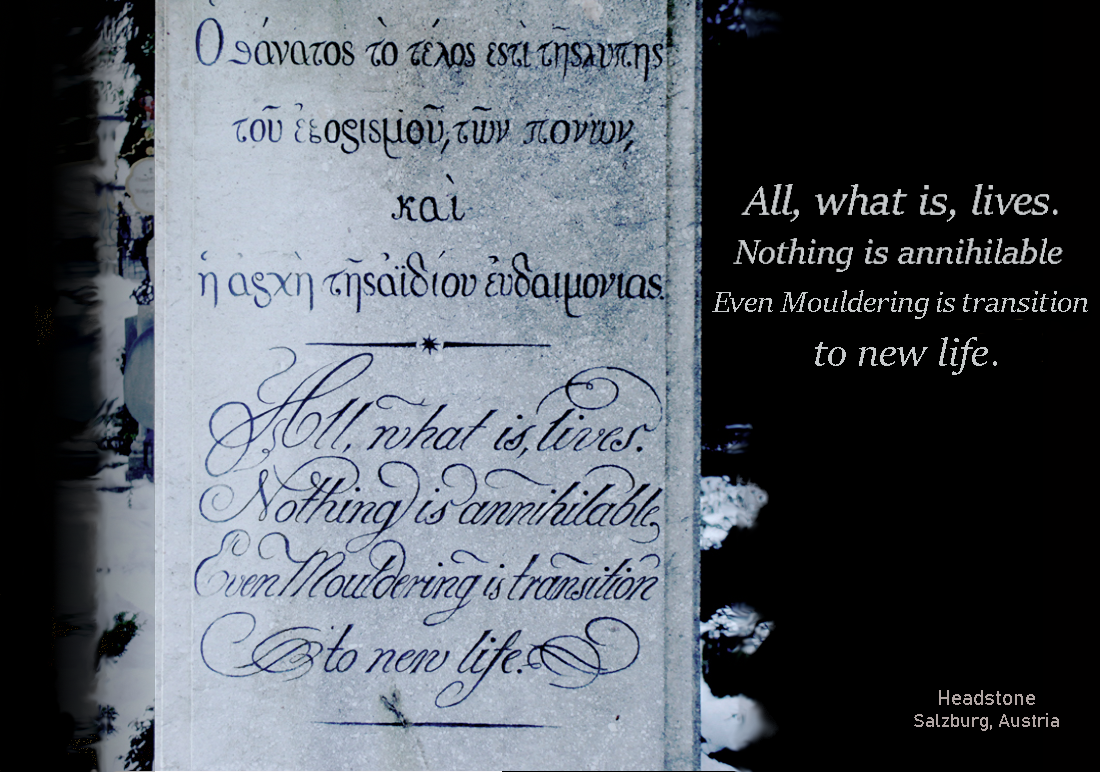 Ὁ θάνατος τὸ τέλος εστὶ τῆς λυπης
τοῦ ἐξορισμοῦ, τῶν πονων,
καὶ
ἡ ἀρχὴ τῆς ἀϊδίου ἐυδαιμονιας.
All, what is, lives.
Nothing is annihilable
Even Mouldering is transition
to new life.
All, what is, lives.
Nothing is annihilable
Even Mouldering is transition
to new life.
Headstone
Salzburg, Austria